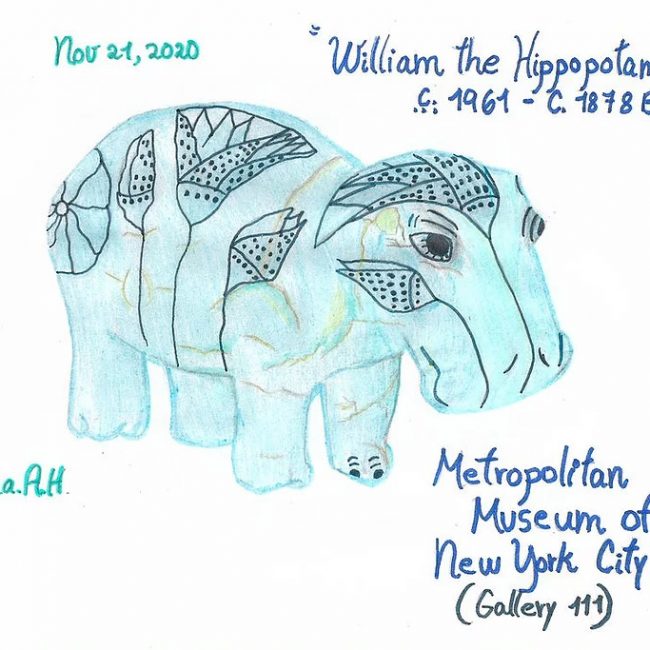 Nov 21, 2020
"William the Hippopotam
.c. 1961 - C. 1878 B
a.A.H.
Metropolitan
Museum of
New York City
(Gallery 111)